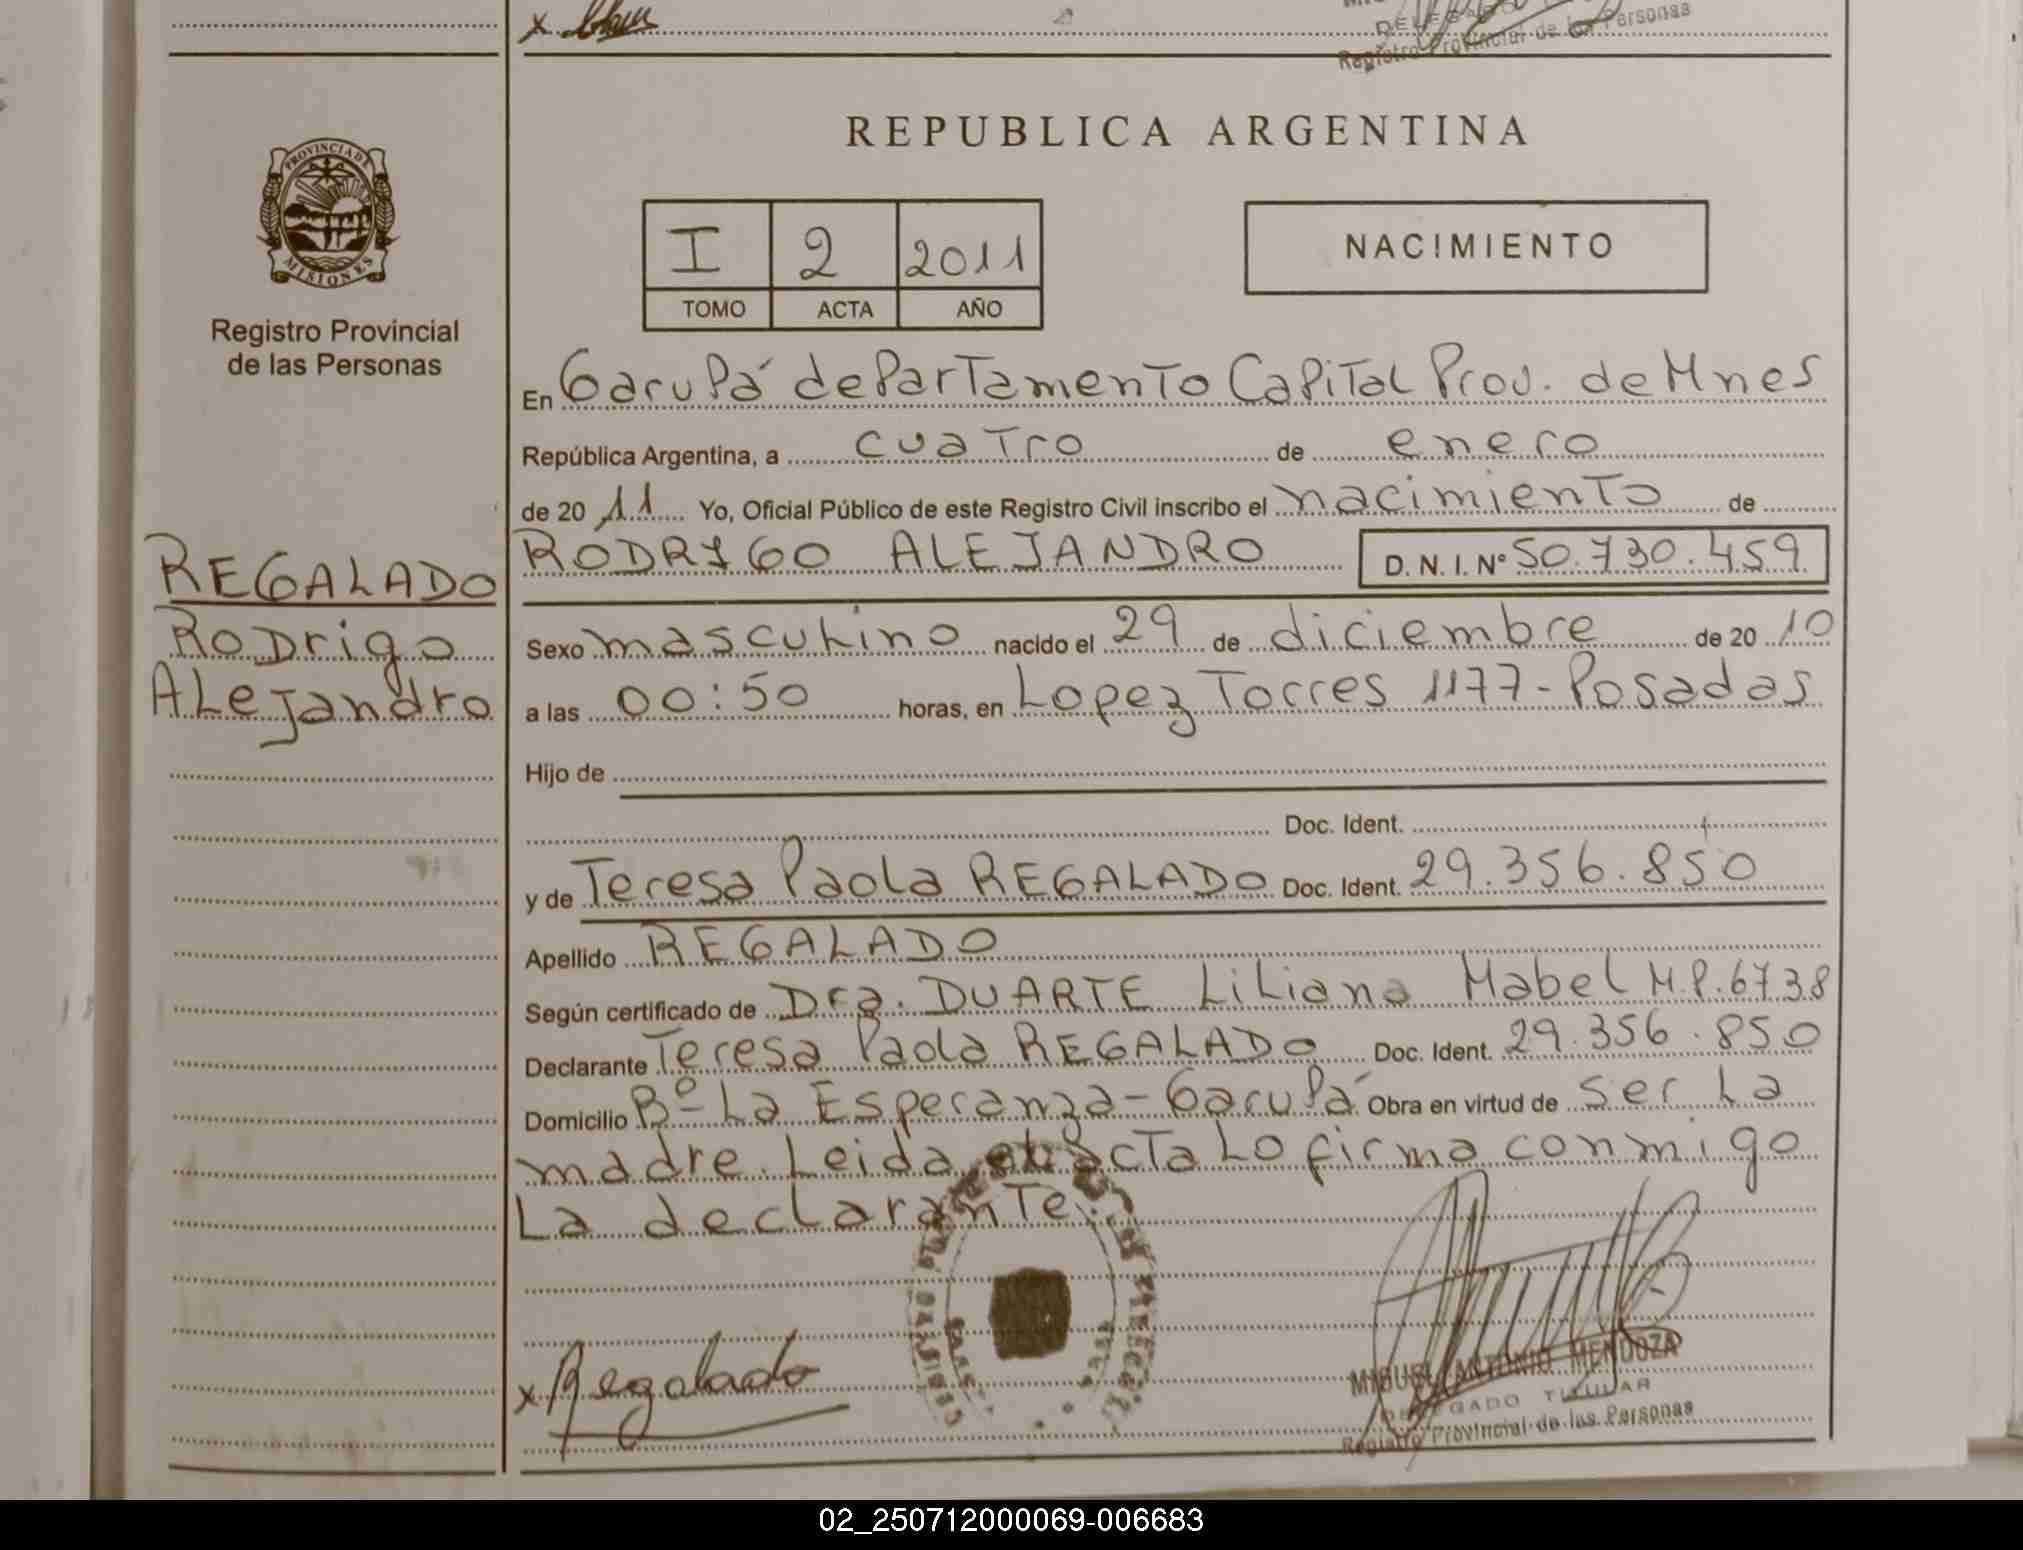 DELEGADO
Registro Provincial de las Personas
PROVINCIA DE
MISIONES
Registro Provincial
de las Personas
REGALADO
Rodrigo
ALejandro
REPUBLICA ARGENTINA
I 2 2011
TOMO ACTA AÑO
NACIMIENTO
En Garupá departamento Capital Prov. de Mnes
República Argentina, a cuatro de enero
de 20 11 Yo, Oficial Público de este Registro Civil inscribo el nacimiento de
RODRIGO ALEJANDRO D. N. I. Nº 50.730.459
Sexo masculino nacido el 29 de diciembre de 20 10
a las 00:50 horas, en Lopez Torres 1177-Posadas
Hijo de
Doc. Ident.
y de Teresa Paola REGALADO Doc. Ident. 29.356.850
Apellido REGALADO
Según certificado de Dra. DUARTE Liliana Mabel M.P. 6738
Declarante Teresa Paola REGALADO Doc. Ident. 29.356.850
Domicilio Bº-La Esperanza-Garupá Obra en virtud de ser la
madre. Leida el acta lo firma conmigo
La declarante.
x Regalado
MIGUEL ANTONIO MENDOZA
DELEGADO TITULAR
Registro Provincial de las Personas
02_250712000069-006683